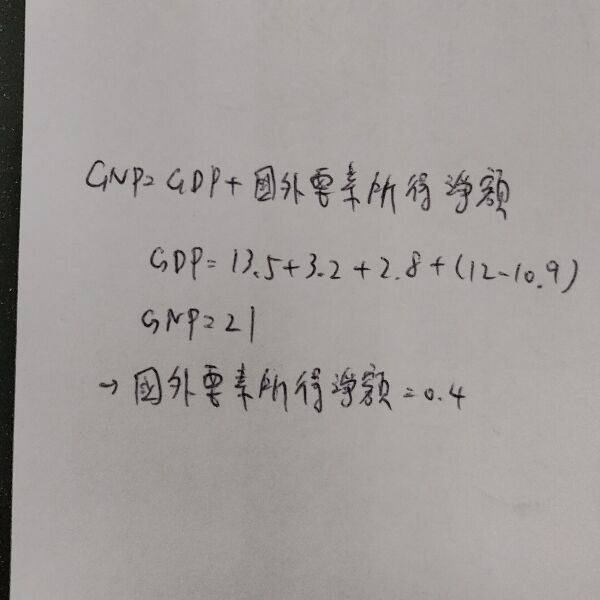 GNP=GDP+國外要素所得淨額
GDP=13.5+3.2+2.8+(12-10.9)
GNP=21
→國外要素所得淨額=0.4